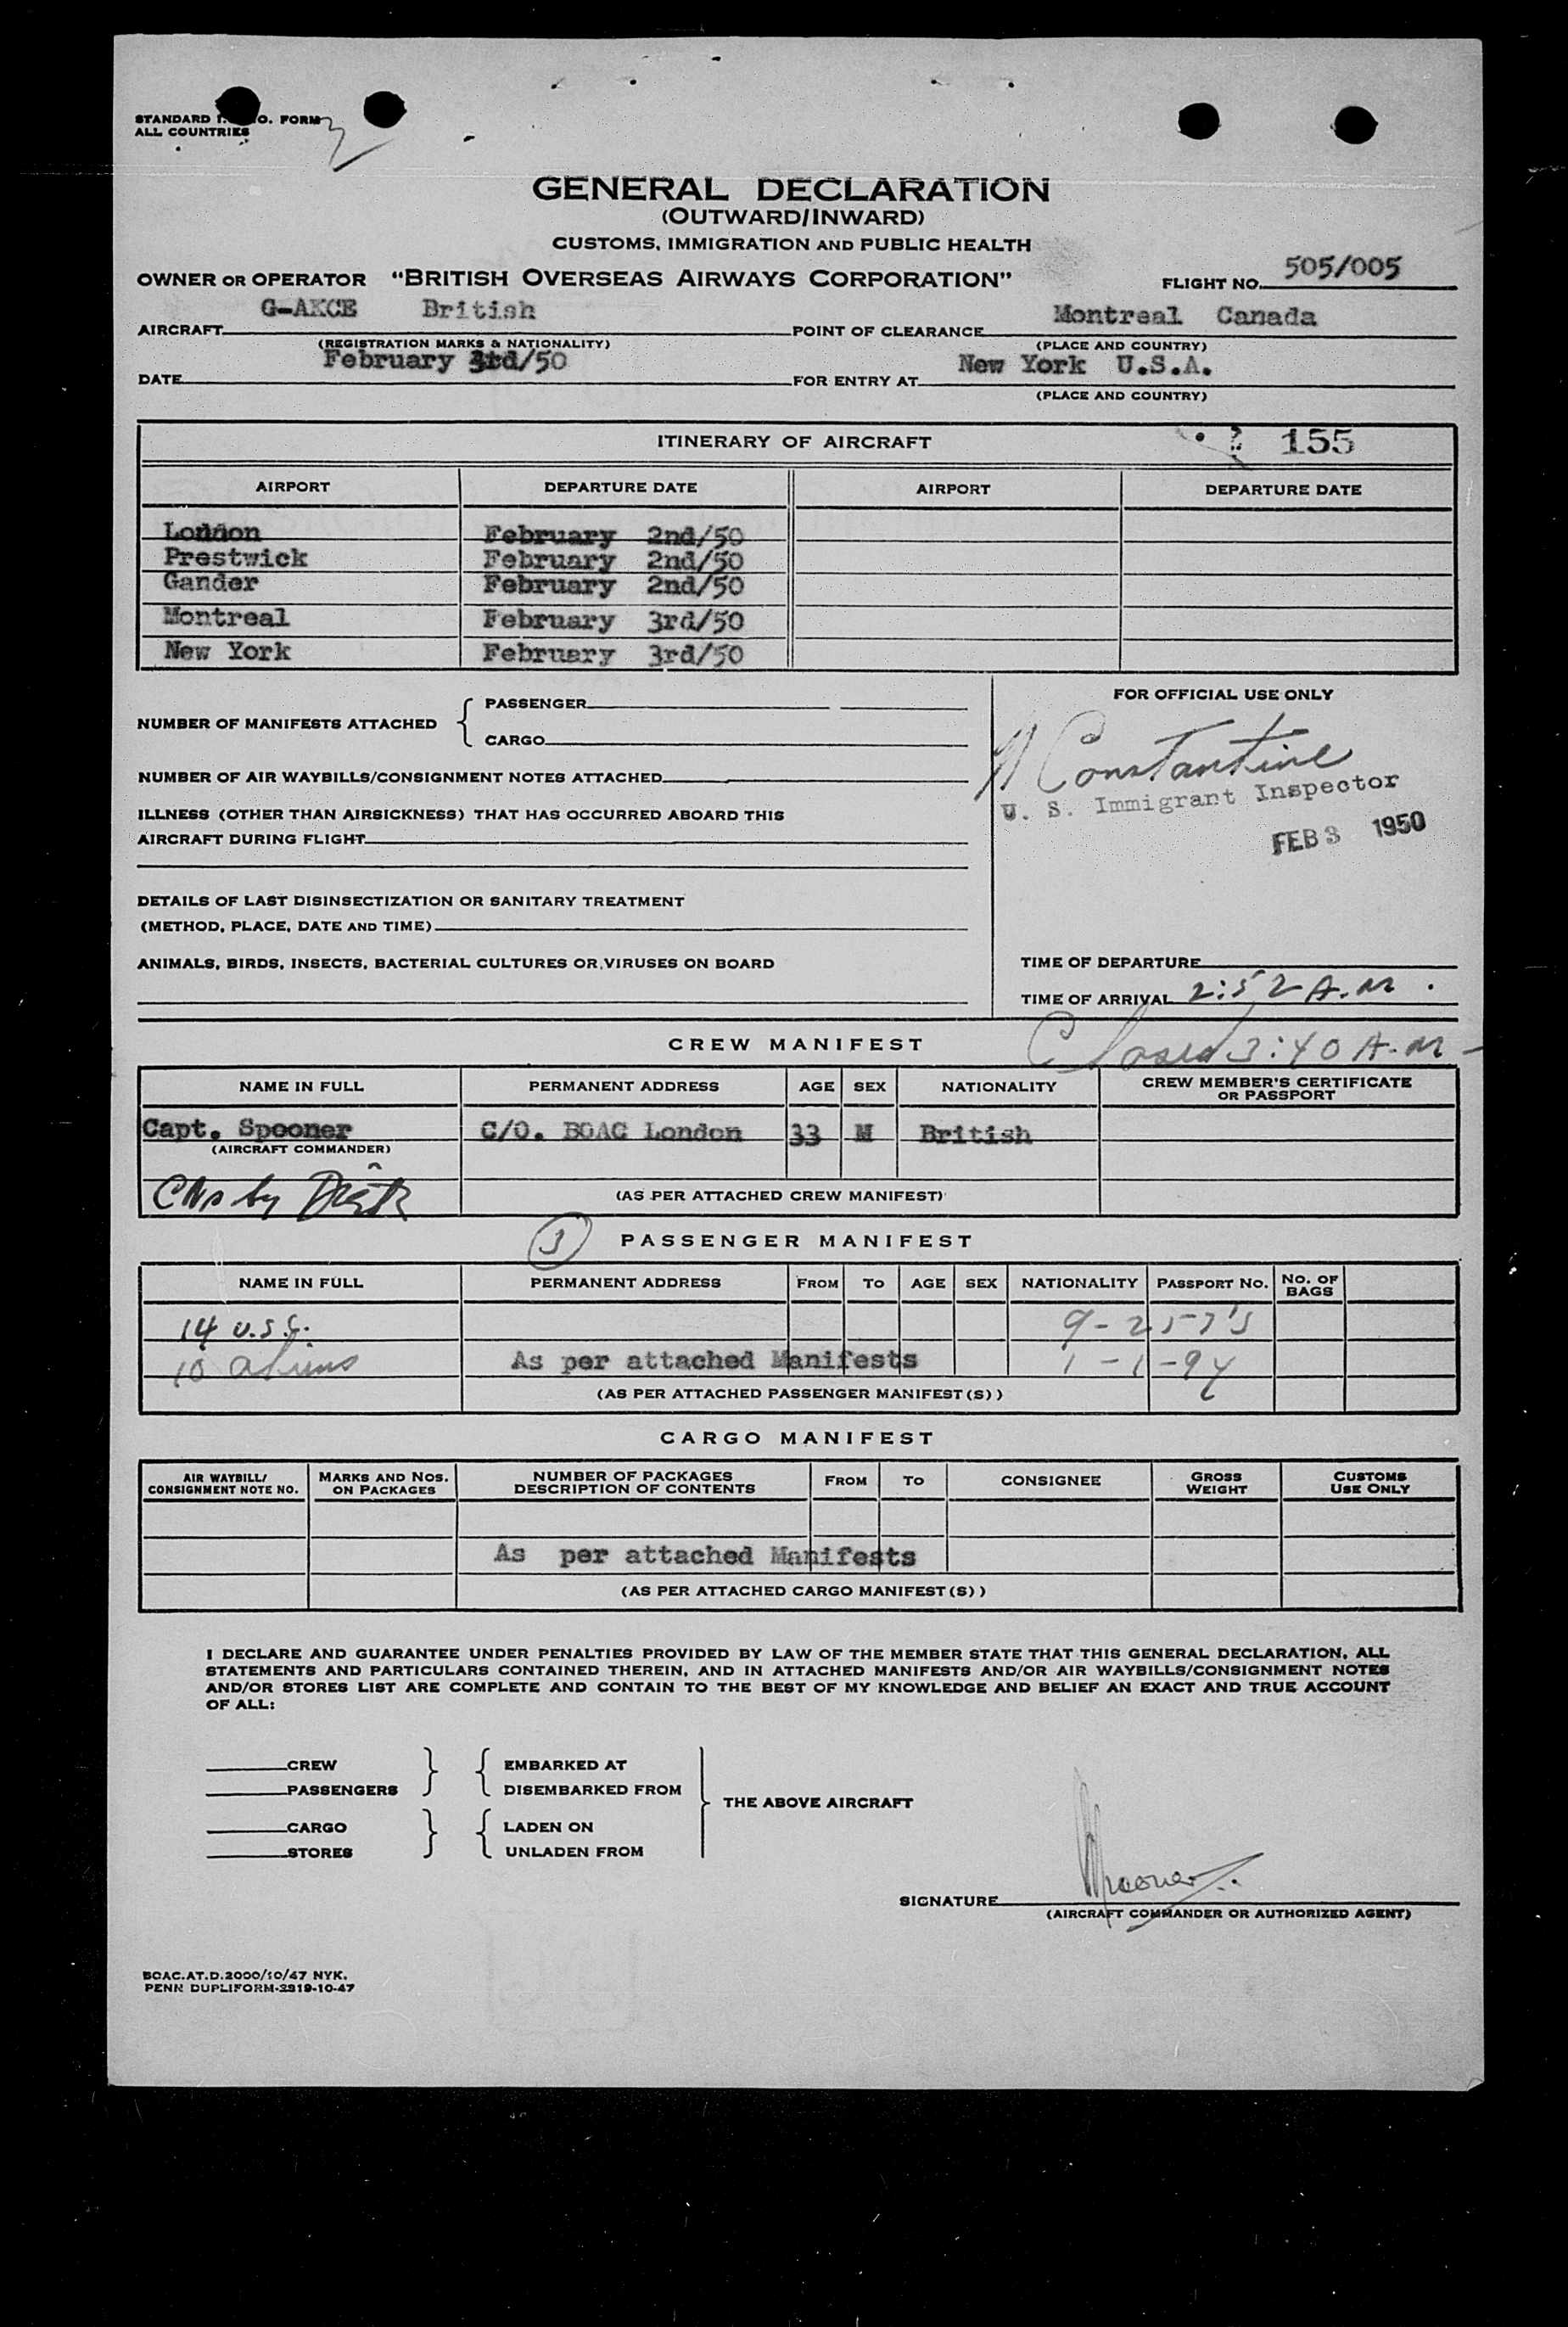 STANDARD I. O. FORM
ALL COUNTRIES
GENERAL DECLARATION
(OUTWARD/INWARD)
CUSTOMS, IMMIGRATION AND PUBLIC HEALTH
OWNER OR OPERATOR "BRITISH OVERSEAS AIRWAYS CORPORATION" FLIGHT NO. 505/005
AIRCRAFT G-AKCE British POINT OF CLEARANCE Montreal Canada
(REGISTRATION MARKS & NATIONALITY) (PLACE AND COUNTRY)
DATE February 3rd/50 FOR ENTRY AT New York U.S.A.
(PLACE AND COUNTRY)
ITINERARY OF AIRCRAFT 155
AIRPORT DEPARTURE DATE AIRPORT DEPARTURE DATE
London February 2nd/50
Prestwick February 2nd/50
Gander February 2nd/50
Montreal February 3rd/50
New York February 3rd/50
FOR OFFICIAL USE ONLY
NUMBER OF MANIFESTS ATTACHED { PASSENGER
CARGO
NUMBER OF AIR WAYBILLS/CONSIGNMENT NOTES ATTACHED
Constantine
U. S. Immigrant Inspector
FEB 3 1950
ILLNESS (OTHER THAN AIRSICKNESS) THAT HAS OCCURRED ABOARD THIS
AIRCRAFT DURING FLIGHT
DETAILS OF LAST DISINSECTIZATION OR SANITARY TREATMENT
(METHOD, PLACE, DATE AND TIME)
ANIMALS, BIRDS, INSECTS, BACTERIAL CULTURES OR VIRUSES ON BOARD
TIME OF DEPARTURE
TIME OF ARRIVAL 2:52 A.M.
Closed 3:40 A.M
CREW MANIFEST
NAME IN FULL PERMANENT ADDRESS AGE SEX NATIONALITY CREW MEMBER'S CERTIFICATE OR PASSPORT
Capt. Spooner C/O. BOAC London 33 M British
(AIRCRAFT COMMANDER)
(AS PER ATTACHED CREW MANIFEST)
3 PASSENGER MANIFEST
NAME IN FULL PERMANENT ADDRESS FROM TO AGE SEX NATIONALITY PASSPORT NO. NO. OF BAGS
14 U.S.C. 9-257's
10 aliens As per attached Manifests 1-1-94
(AS PER ATTACHED PASSENGER MANIFEST(S))
CARGO MANIFEST
AIR WAYBILL/ CONSIGNMENT NOTE NO. MARKS AND NOS. ON PACKAGES NUMBER OF PACKAGES DESCRIPTION OF CONTENTS FROM TO CONSIGNEE GROSS WEIGHT CUSTOMS USE ONLY
As per attached Manifests
(AS PER ATTACHED CARGO MANIFEST(S))
I DECLARE AND GUARANTEE UNDER PENALTIES PROVIDED BY LAW OF THE MEMBER STATE THAT THIS GENERAL DECLARATION, ALL
STATEMENTS AND PARTICULARS CONTAINED THEREIN, AND IN ATTACHED MANIFESTS AND/OR AIR WAYBILLS/CONSIGNMENT NOTES
AND/OR STORES LIST ARE COMPLETE AND CONTAIN TO THE BEST OF MY KNOWLEDGE AND BELIEF AN EXACT AND TRUE ACCOUNT
OF ALL:
CREW } { EMBARKED AT
PASSENGERS DISEMBARKED FROM
THE ABOVE AIRCRAFT
CARGO } { LADEN ON
STORES UNLADEN FROM
SIGNATURE Spooner
(AIRCRAFT COMMANDER OR AUTHORIZED AGENT)
BOAC.AT.D.2000/10/47 NYK.
PENN DUPLIFORM-2919-10-47